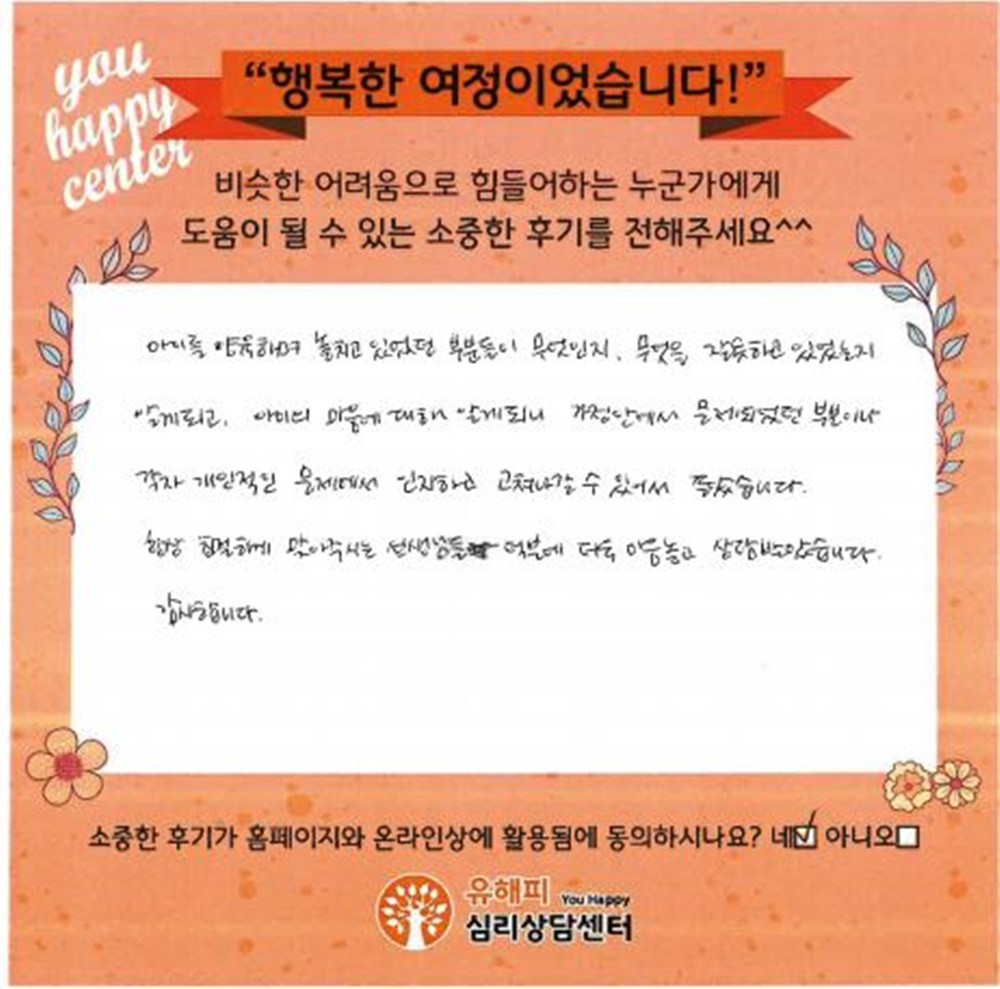 you
happy
center
“행복한 여정이었습니다!”
비슷한 어려움으로 힘들어하는 누군가에게
도움이 될 수 있는 소중한 후기를 전해주세요^^
아이를 양육하며 놓치고 있었던 부분들이 무엇인지, 무엇을 잘못하고 있었는지
알게되고, 아이의 마음에 대해 알게되니 가정안에서 문제되었던 부분이나
각자 개인적인 문제에서 인지하고 고쳐나갈 수 있어서 좋았습니다.
항상 친절하게 맞아주시는 선생님들 덕분에 더욱 마음놓고 상담받았습니다.
감사합니다.
소중한 후기가 홈페이지와 온라인상에 활용됨에 동의하시나요? 네☑ 아니오☐
유해피 You Happy
심리상담센터